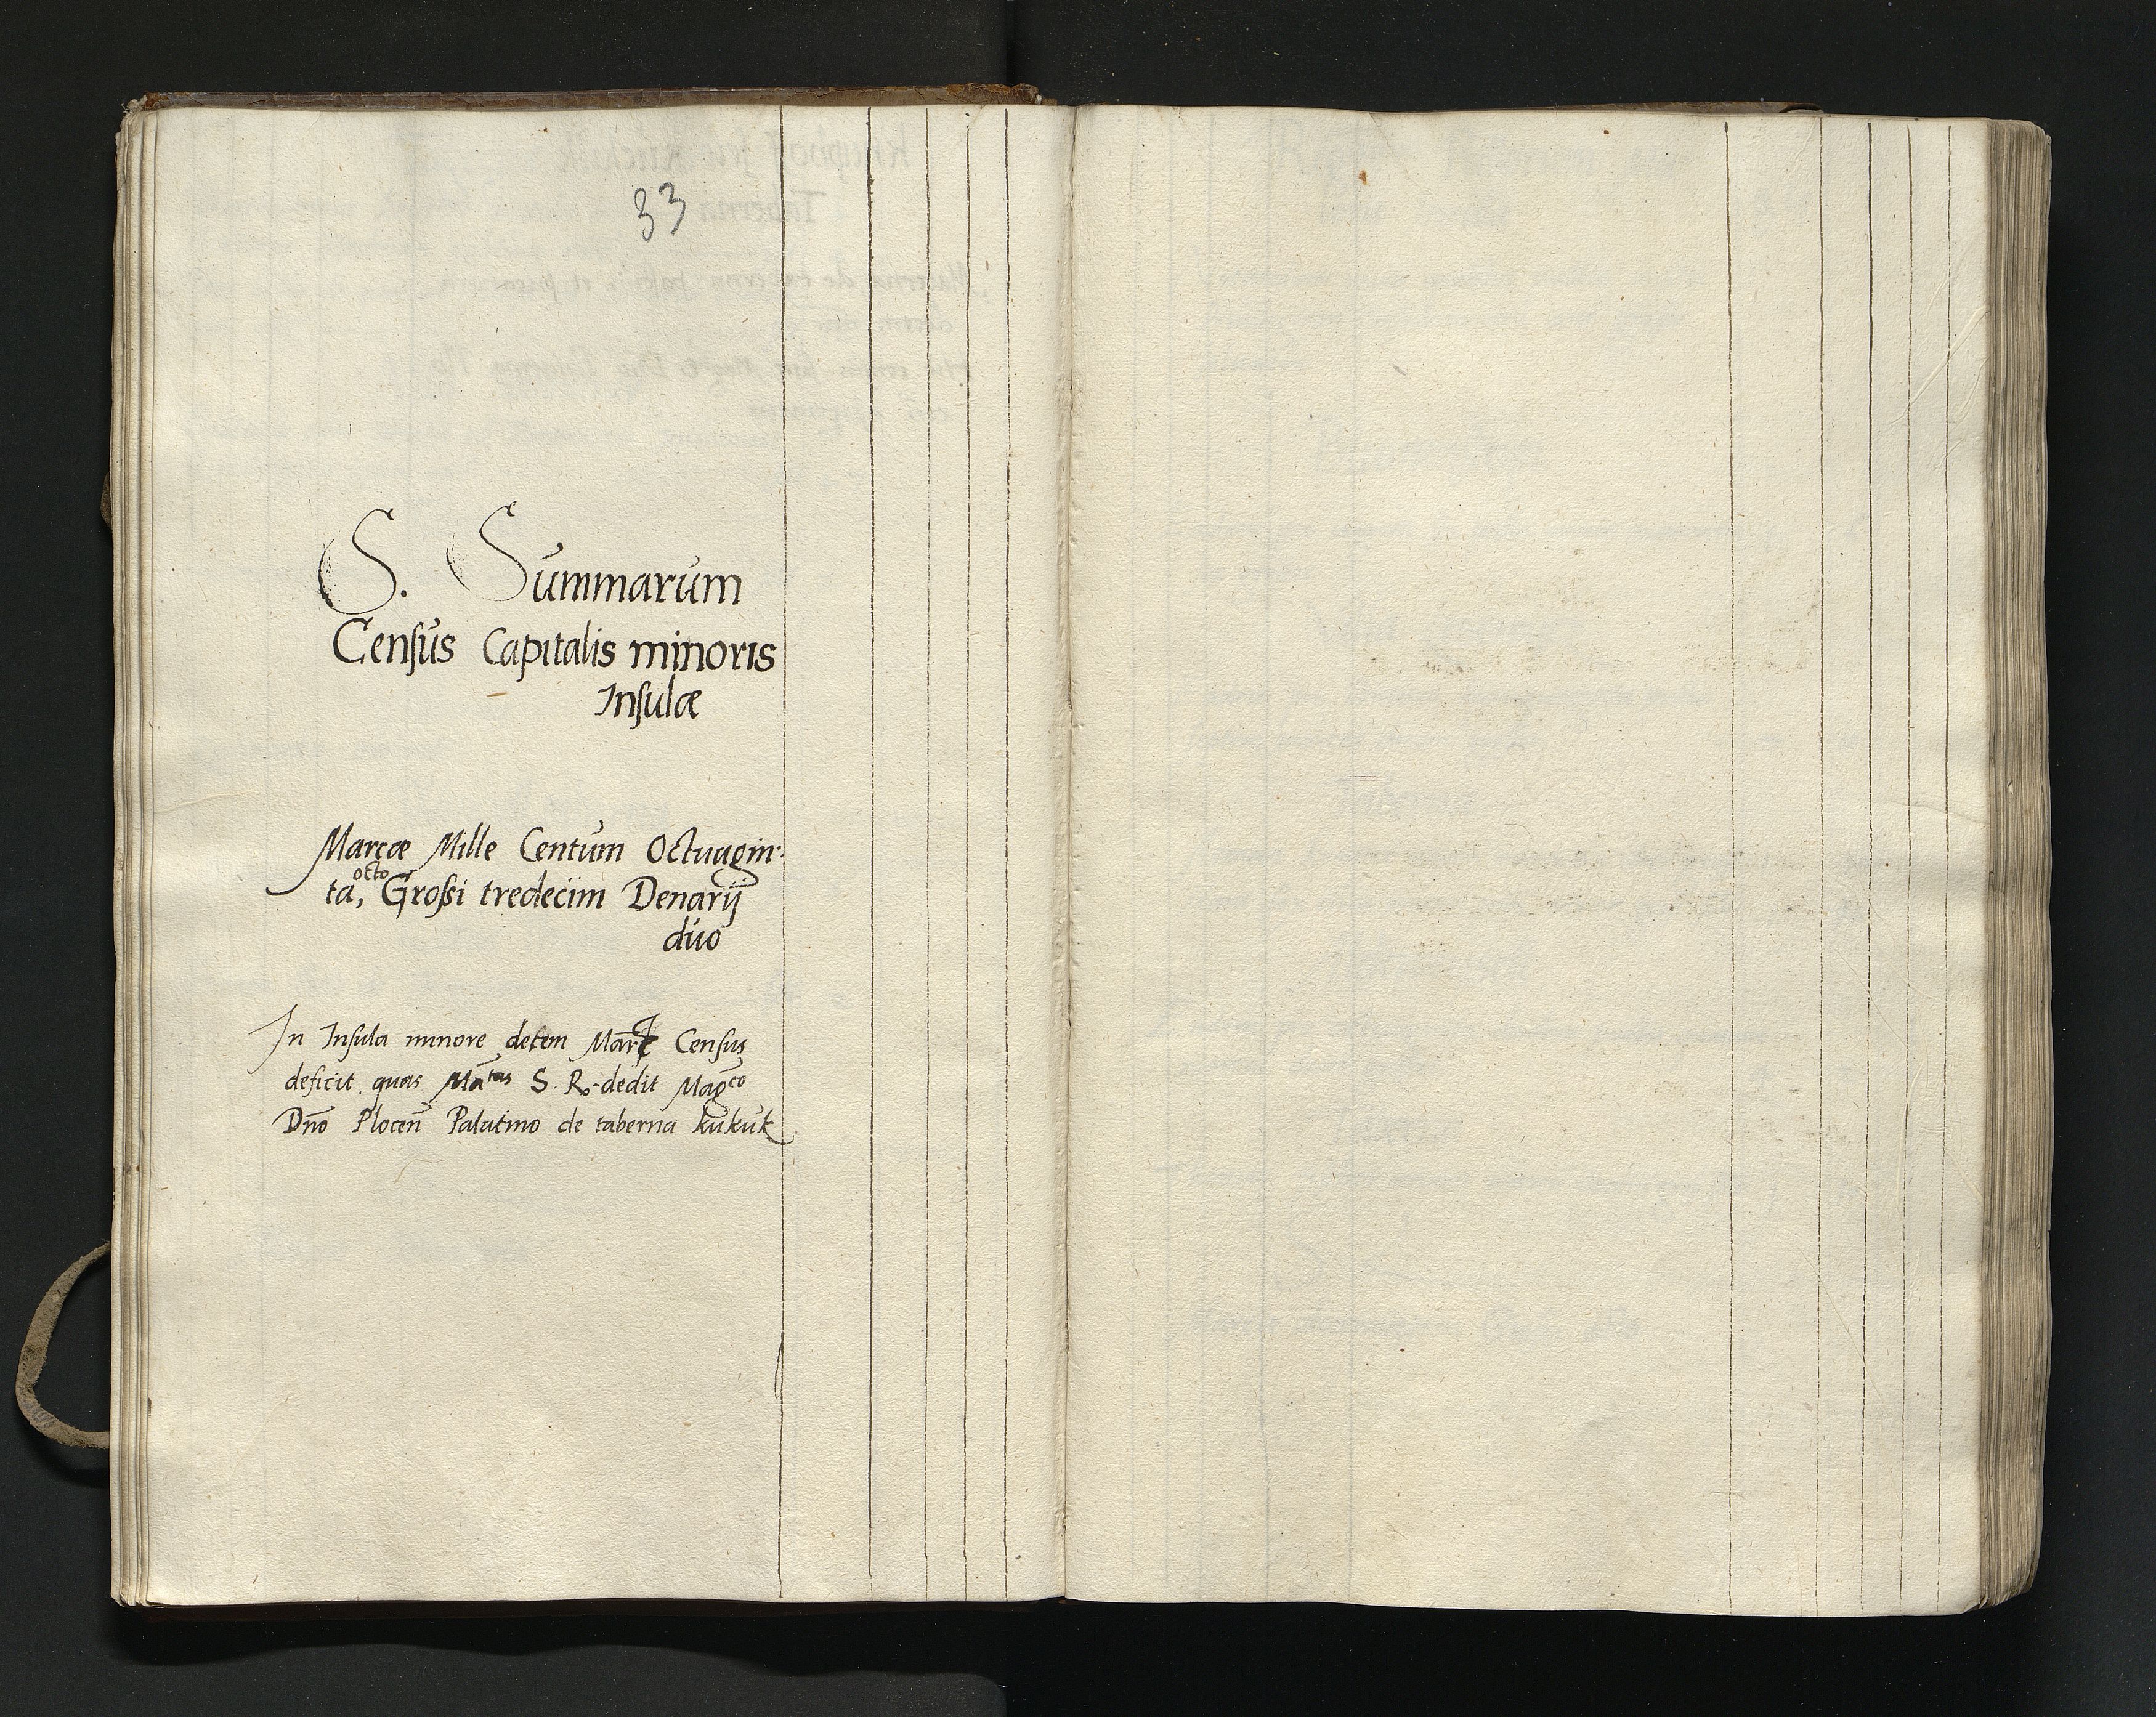 33
S. Summarum
Census Capitalis minoris
Insulæ
Marcæ Mille Centum Octuagin-
ta, octo Grossi tredecim Denarij
duo
In Insula minore decem Census
deficit quas Ma^tas S. R. dedit Mag^co
Dn̄o Plocen̄ Palatino de taberna kukuk